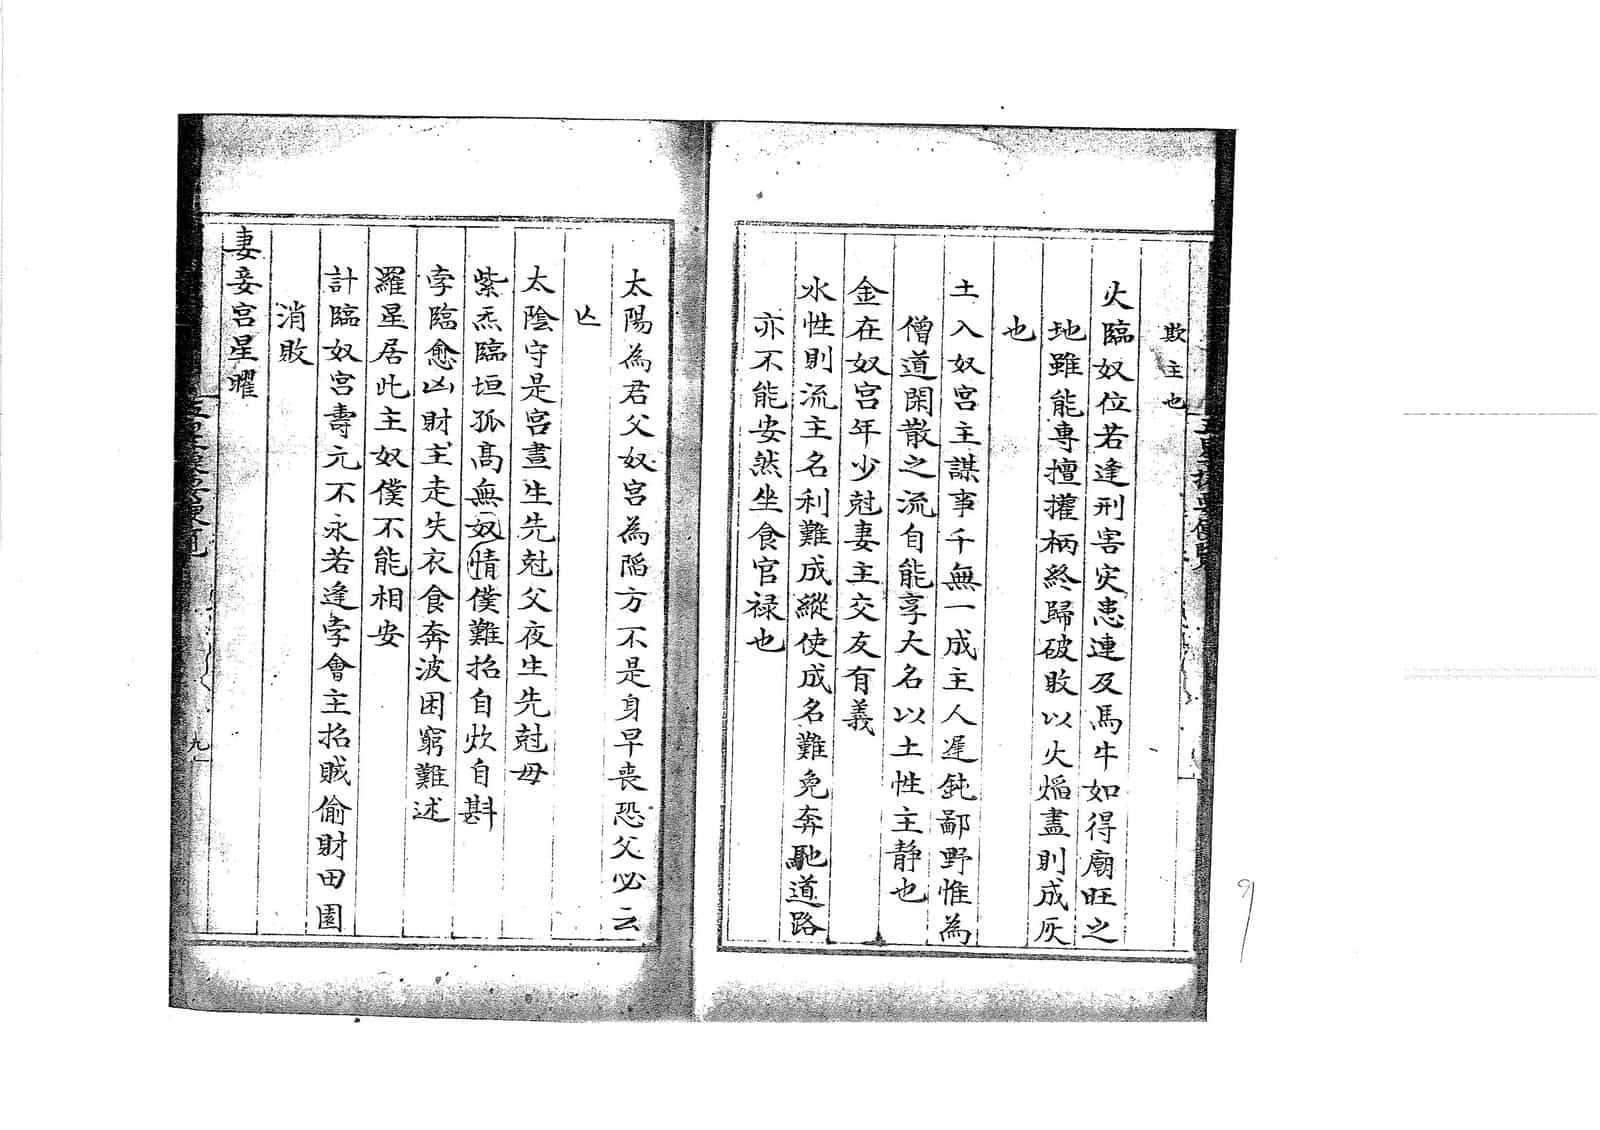 欺主也
火臨奴位若逢刑害灾患連及馬牛如得廟旺之
地雖能專擅權柄終歸破敗以火熖盡則成灰
也
土入奴宮主謀事千無一成主人遲鈍鄙野惟為
僧道閑散之流自能享大名以土性主静也
金在奴宮年少尅妻主交友有義
水性則流主名利難成縱使成名難免奔馳道路
亦不能安然坐食官禄也
太陽為君父奴宮為陷方不是身早喪恐父必云
亾
太陰守是宮晝生先尅父夜生先尅母
紫炁臨垣孤髙無奴情僕難招自炊自斟
孛臨愈凶財主走失衣食奔波困窮難述
羅星居此主奴僕不能相安
計臨奴宮壽元不永若逢孛會主招賊偷財田園
消敗
妻妾宮星曜
九
9